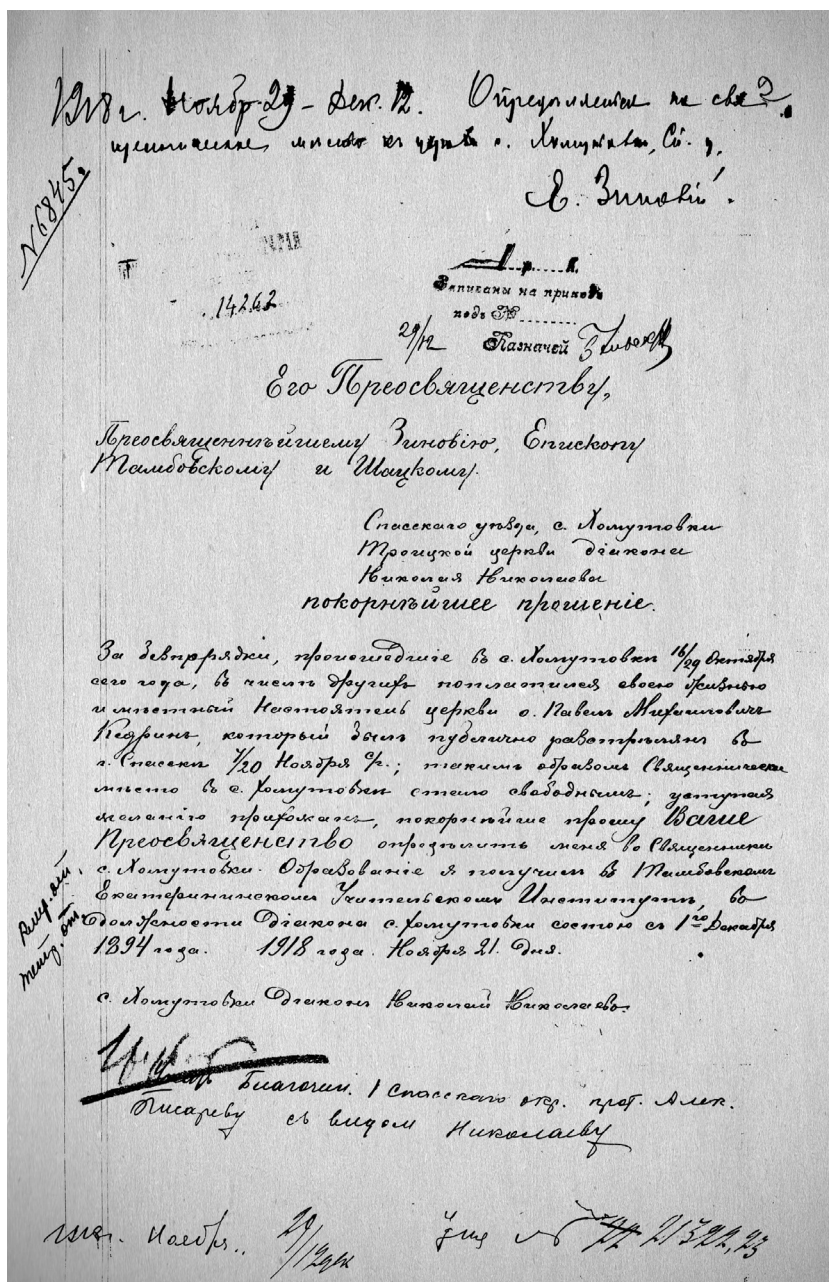 1918 г. Ноябр. 29 – Дек. 12. Определяется на свя-
щенническое место къ церкви с. Хомутовки, Сп. у.
Е. Зиновій.
№ 6845.
14262
р. к.
Записаны на приходъ
подъ №
29/12 Казначей
Его Преосвященству,
Преосвященнѣйшему Зиновію, Епископу
Тамбовскому и Шацкому.
Спасскаго уѣзда, с. Хомутовки
Троицкой церкви діакона
Николая Николаева
покорнѣйшее прошеніе.
За безпорядки, происшедшіе въ с. Хомутовки 16/29 Октября
сего года, въ числѣ другихъ поплатился своею жизнью
и мѣстный Настоятель церкви о. Павелъ Михаиловичъ
Кедринъ, который былъ публично разстрѣлянъ въ
г. Спасски 7/20 Ноября с/г.; такимъ образомъ Священническ.
мѣсто въ с. Хомутовки стало свободнымъ; уступая
желанію прихожанъ, покорнѣйше прошу Ваше
Преосвященство опредѣлить меня во Священники
с. Хомутовки. Образованіе я получилъ въ Тамбовскомъ
Екатерининскомъ Учительскомъ Институтѣ, въ
должности Діакона с. Хомутовки состою съ 1го Декабря
1894 года. 1918 года. Ноября 21. дня.
с. Хомутовки Діаконъ Николай Николаевъ.
Благочин. 1 Спасскаго окр. прот. Алек.
Писареву съ видом Николаеву
Ноября 29/12 дек № 21322,23